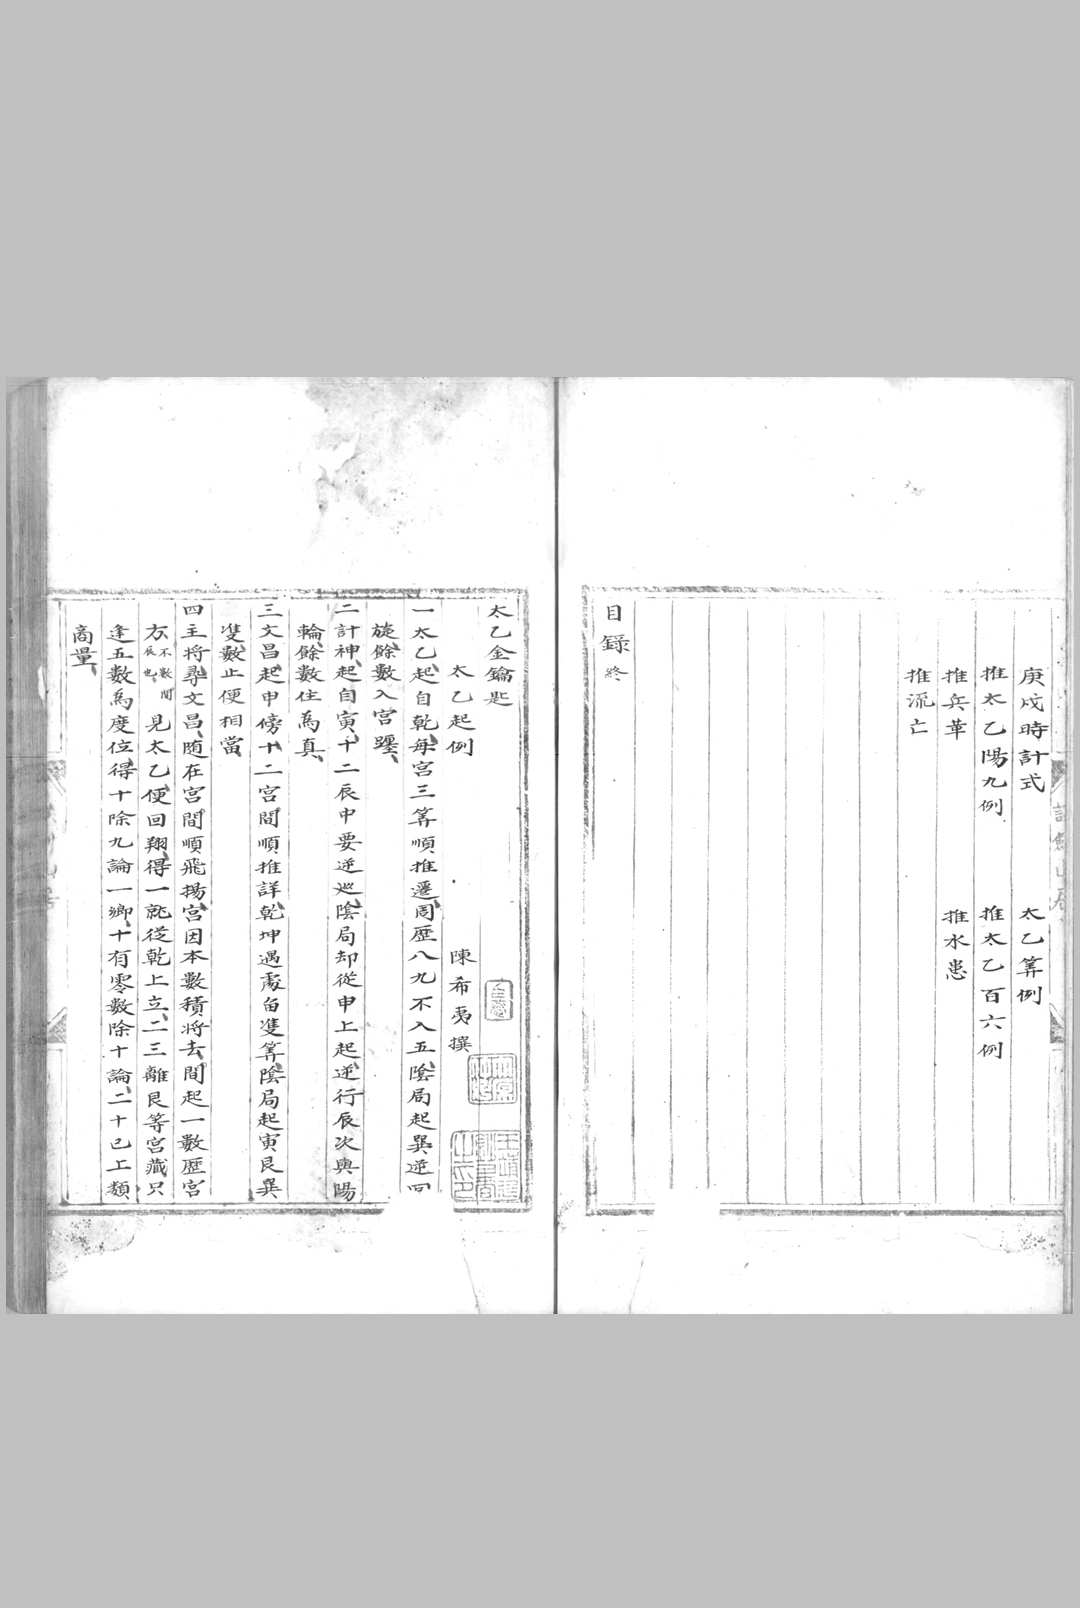 庚戍時計式　太乙筭例
推太乙陽九例　推太乙百六例
推兵革　推水患
推流亡
目録終
太乙金鑰匙
太乙起例　陳希夷撰
一太乙起自乾每宫三筭順推遷周歷八九不入五隂局起巽逆回
旋餘數入宫躔
二計神起自寅十二辰中要逆廵隂局却從申上起逆行辰次與陽
輪餘數住爲真
三文昌起申傍十二宫間順推詳乾坤遇處留雙筭隂局起寅艮巽
雙數止便相當
四主将尋文昌随在宫間順飛揚宫因本數積将去間起一數歷宫
方不數間辰也見太乙便回翔得一就從乾上立二三離艮等宫藏只
逢五數爲度位得十除九論一鄉十有零數除十論二十已上類
商量